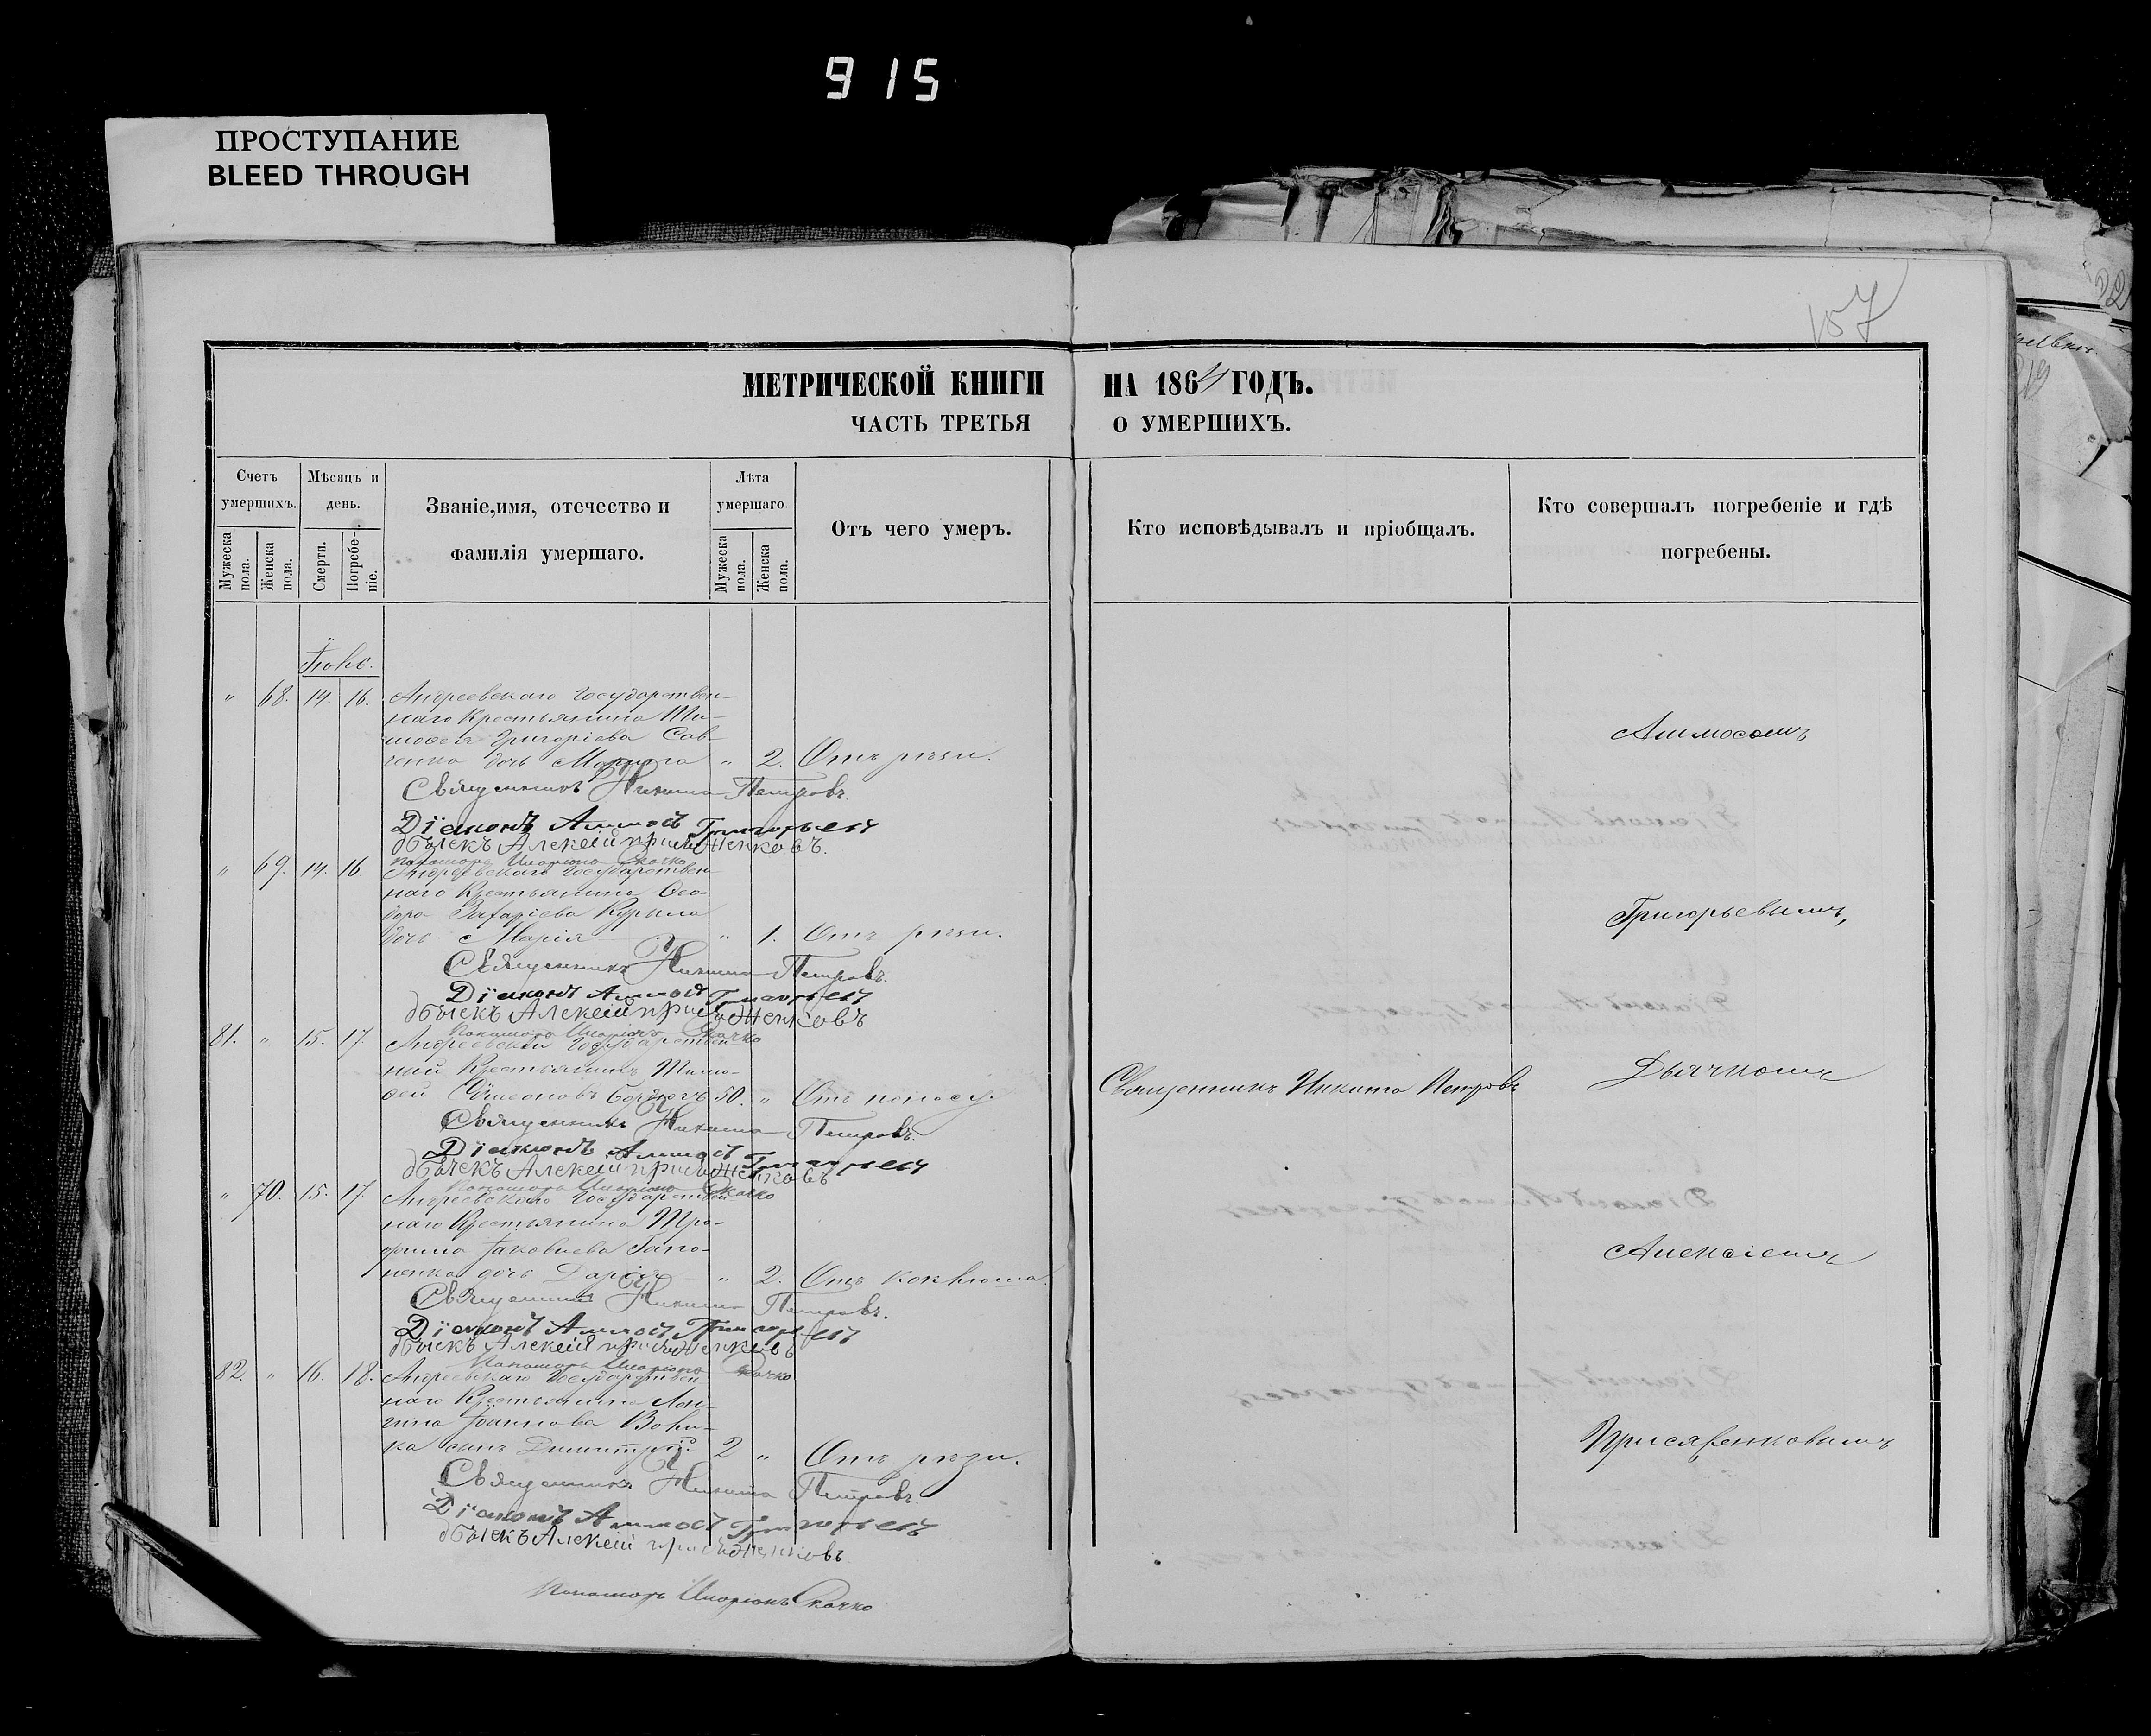 915
ПРОСТУПАНИЕ
BLEED THROUGH
157
МЕТРИЧЕСКОЙ КНИГИ НА 1864 ГОДЪ.
ЧАСТЬ ТРЕТЬЯ О УМЕРШИХЪ.
Счетъ умершихъ.
Мужеска пола.
Женска пола.
Мѣсяцъ и день.
Смерти.
Погребе-ніе.
Званіе, имя, отечество и
фамилія умершаго.
Лѣта умершаго.
Мужеска пола.
Женска пола.
Отъ чего умеръ.
Кто исповѣдывалъ и пріобщалъ.
Кто совершалъ погребеніе и гдѣ
погребены.
Іюнь.
" 68. 14. 16. Андреевскаго Государствен-
наго Крестьянина Ти-
мофея Григоріева Сав-
ченка дочь " 2. Отъ рѣзи.
Священникъ Никита Петровъ.
Діаконъ Аммосъ Григорьевъ
дьячекъ Алексій Присяженковъ.
Пономарь Иларіонъ Скачко
" 69. 14. 16. Андреевскаго Государствен-
наго Крестьянина Ѳео-
дора Захаріева Курила
дочь Марія " 1. Отъ рѣзи.
Священникъ Никита Петровъ.
Діаконъ Аммосъ Григорьевъ
дьячекъ Алексій Присяженковъ
Пономарь Иларіонъ Скачко
81. " 15. 17. Андреевскій Государствен-
ный Крестьянинъ Тимо-
фей Сѵмеоновъ 50. " Отъ поносу.
Священникъ Никита Петровъ
Священникъ Никита Петровъ.
Діаконъ Аммосъ Григорьевъ
дьячекъ Алексій Присяженковъ
Пономарь Иларіонъ Скачко
" 70. 15. 17. Андреевскаго Государствен-
наго Крестьянина Тро-
фима Іаковлева Гапо-
ненка дочь Дарія " 2. Отъ коклюша.
Священникъ Никита Петровъ.
Діаконъ Аммосъ Григорьевъ
дьячекъ Алексій Присяженковъ
Пономарь Иларіонъ Скачко
82. " 16. 18. Андреевскаго Государствен-
наго Крестьянина Лон-
гина Іоаннова Вовы-
ка сынъ Димитрій 2 " Отъ рѣзи.
Священникъ Никита Петровъ.
Діаконъ Аммосъ Григорьевъ
дьячекъ Алексій Присяженковъ
Пономарь Иларіонъ Скачко
Аммосомъ
Григорьевымъ,
Дьячкомъ
Алексіемъ
Присяженковымъ